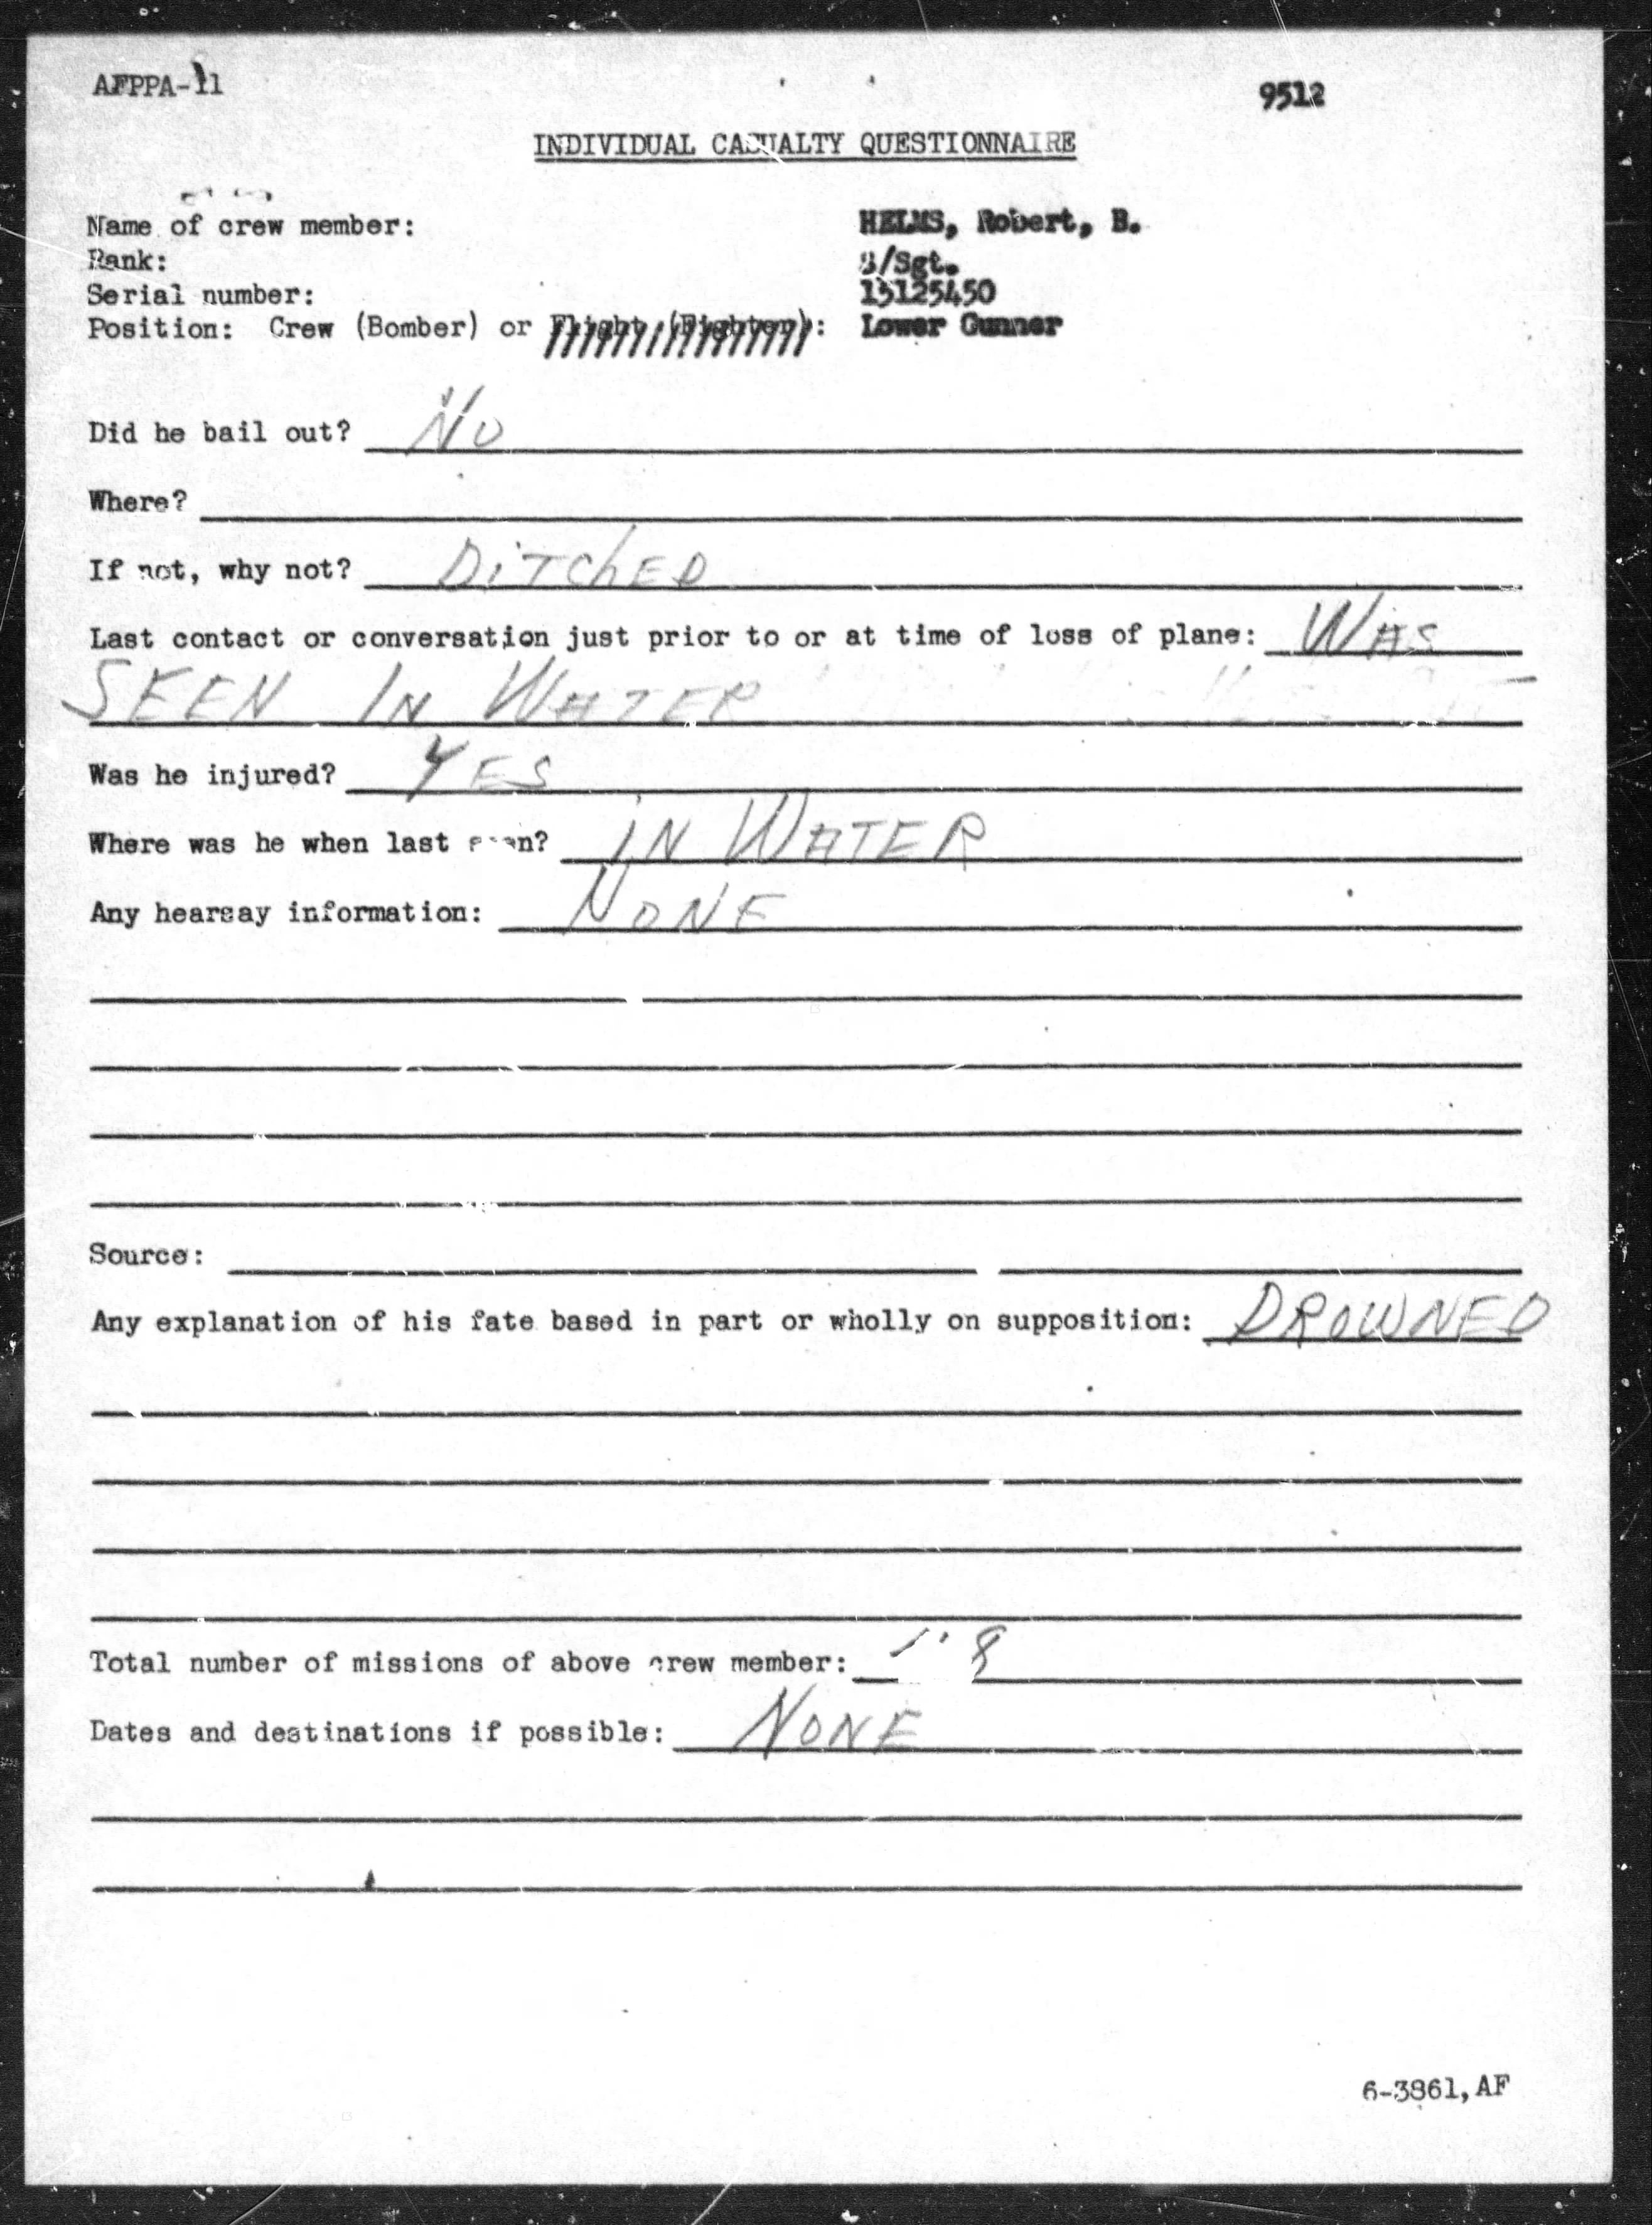 AFPPA-11
9512
INDIVIDUAL CASUALTY QUESTIONNAIRE
Name of crew member: HELMS, Robert, B.
Rank: S/Sgt.
Serial number: 13125450
Position: Crew (Bomber) or Flight (Fighter): Lower Gunner
Did he bail out? NO
Where?
If not, why not? DITCHED
Last contact or conversation just prior to or at time of loss of plane: WAS
SEEN IN WATER
Was he injured? YES
Where was he when last seen? IN WATER
Any hearsay information: NONE
Source:
Any explanation of his fate based in part or wholly on supposition: DROWNED
Total number of missions of above crew member: 8
Dates and destinations if possible: NONE
6-3861, AF